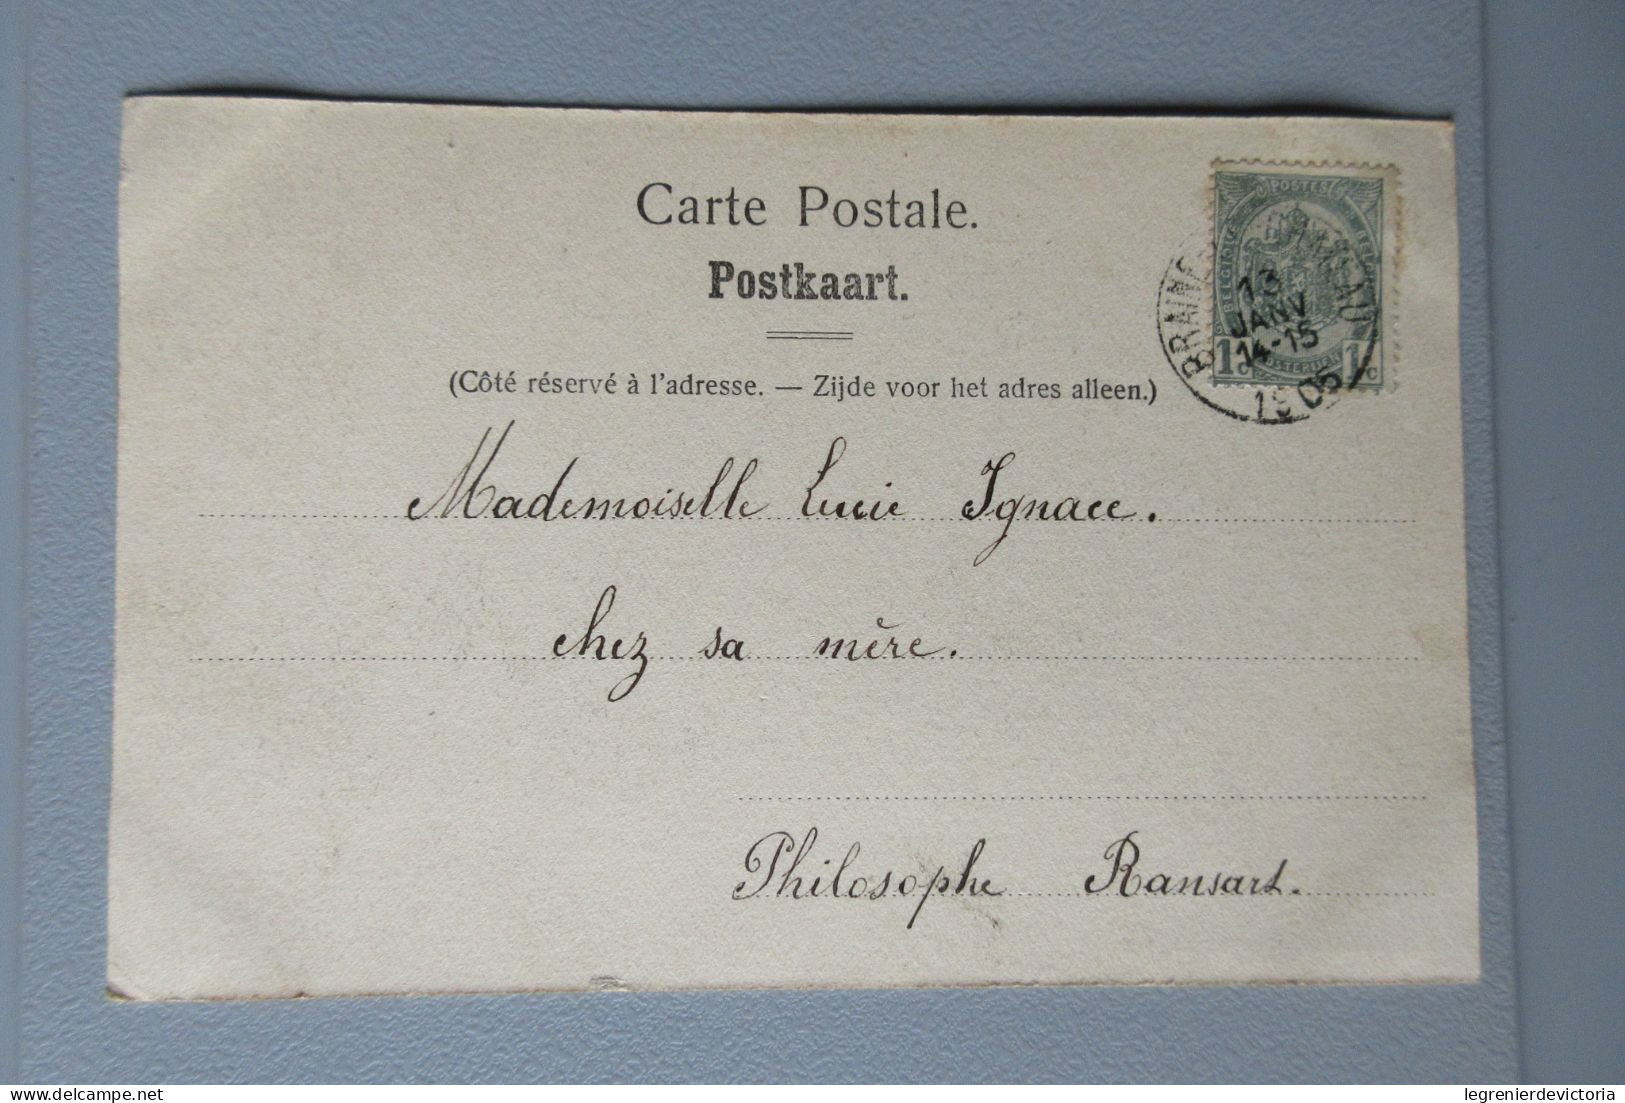 Carte Postale.
Postkaart.
(Côté réservé à l'adresse. — Zijde voor het adres alleen.)
POSTES
BELGIQUE
13
JANV
14-15
1905
1c 1c
Mademoiselle Lucie Ignace.
chez sa mère.
Philosophe Ransart.
delcampe.net
legrenierdevictoria